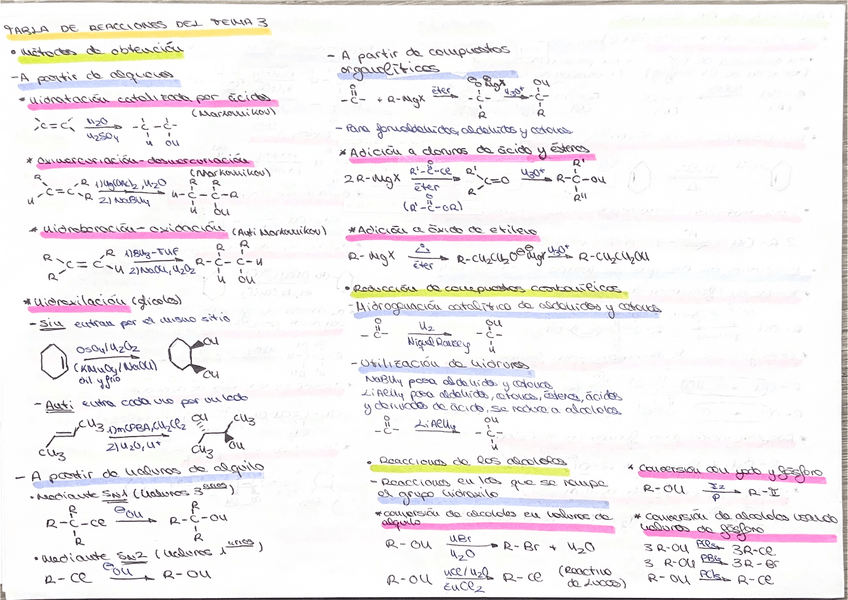 TABLA DE REACCIONES DEL TEMA 3
• Métodos de obtención
- A partir de alquenos
* Hidratación catalizada por ácidos
(Markovnikov)
C=C H₂O
H₂SO₄
-C-C-
H OH
* Oximercuriación-desmercuriación
(Markovnikov)
R R
H C=C R 1) Hg(OAc)₂, H₂O
2) NaBH₄
R R
H-C-C-R
H OH
* Hidroboración-oxidación (Anti Markovnikov)
R R
R C=C H 1) BH₃-THF
2) NaOH, H₂O₂
R R
R-C-C-H
H OH
* Hidroxilación (glicoles)
- Sin entran por el mismo sitio
OsO₄/H₂O₂
(KMnO₄/NaOH)
dil y frío
OH
OH
- Anti entra cada uno por un lado
CH₃
CH₃
1) mCPBA, CH₂Cl₂
2) H₂O, H⁺
OH
CH₃
CH₃
OH
- A partir de haluros de alquilo
• Mediante SN1 (haluros 3arios)
R
R-C-Cl ⊖OH
R
R
R-C-OH
R
• Mediante SN2 (haluros 1arios)
R-Cl ⊖OH R-OH
- A partir de compuestos
organolíticos
O
-C- + R-MgX éter
O⊖MgX
-C-
R
H₃O⁺
OH
-C-
R
- Para formaldehidos, aldehidos y cetonas
* Adición a cloruros de ácido y ésteres
2R-MgX
O
R'-C-Cl
éter
O
(R'-C-OR)
R'
R C=O H₃O⁺
R'
R-C-OH
R"
* Adición a óxido de etileno
R-MgX éter R-CH₂CH₂O⊖⊕MgX H₃O⁺ R-CH₂CH₂OH
• Reducción de compuestos carbonílicos
- Hidrogenación catalítica de aldehidos y cetonas
O
-C- H₂
Niquel Raney
OH
-C-
H
- Utilización de hidruros
NaBH₄ para aldehidos y cetonas
LiAlH₄ para aldehidos, cetonas, ésteres, ácidos
y derivados de ácido, se reduce a alcoholes
O
-C- LiAlH₄
OH
-C-
H
• Reacciones de los alcoholes
- Reacciones en las que se rompe
el grupo hidroxilo
* Conversión de alcoholes en haluros de
alquilo
R-OH HBr
H₂O
R-Br + H₂O
R-OH HCl/H₂O
ZnCl₂
R-Cl (Reactivo
de Lucas)
* Conversión con yodo y fósforo
R-OH I₂
P
R-I
* Conversión de alcoholes usando
haluros de fósforo
3 R-OH PCl₃ 3R-Cl
3 R-OH PBr₃ 3R-Br
R-OH PCl₅ R-Cl